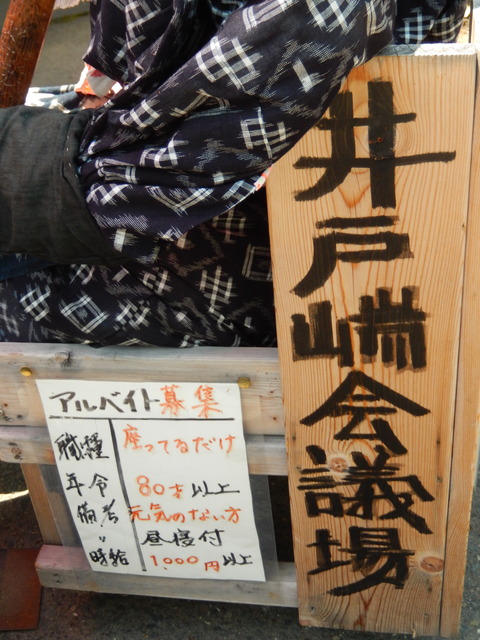 井戸端会議場
アルバイト募集
職種 座ってるだけ
年令 80才以上
備考 元気のない方
〃 昼寝付
時給 1,000円以上